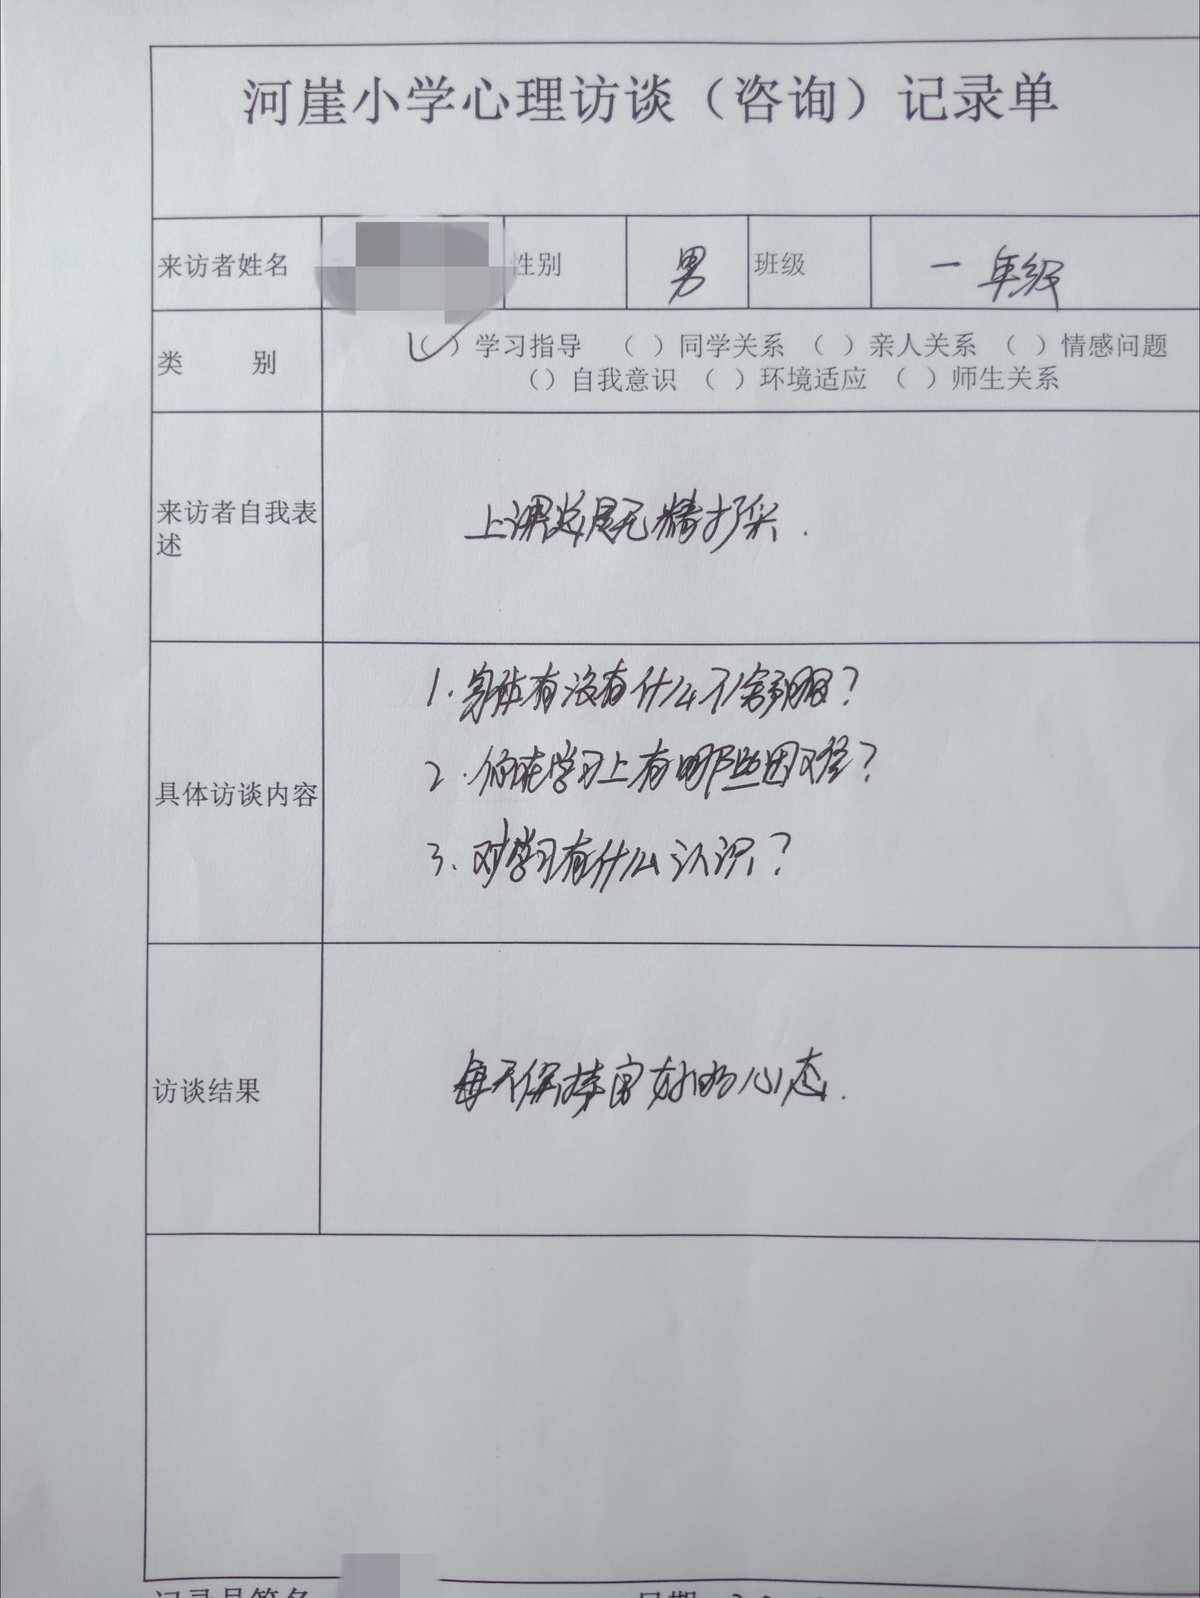 河崖小学心理访谈（咨询）记录单
来访者姓名 性别 男 班级 一年级
类 别 （ ）学习指导 （ ）同学关系 （ ）亲人关系 （ ）情感问题
（）自我意识 （ ）环境适应 （ ）师生关系
来访者自我表述
上课总是无精打采.
具体访谈内容
1.身体有没有什么不舒服?
2.你在学习上有哪些困难?
3.对学习有什么认识?
访谈结果
每天保持良好的心态.
记录员签名 日期